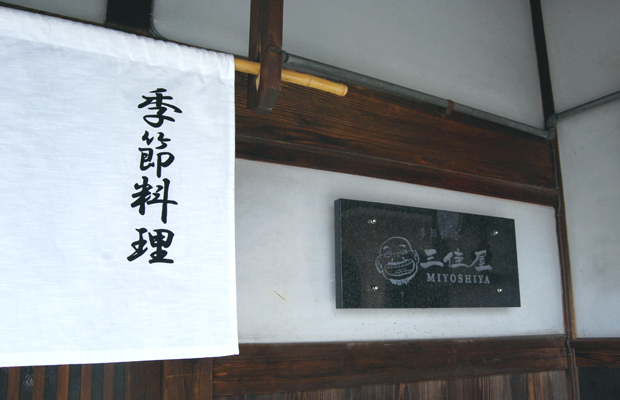 季節料理
三佳屋
MIYOSHIYA